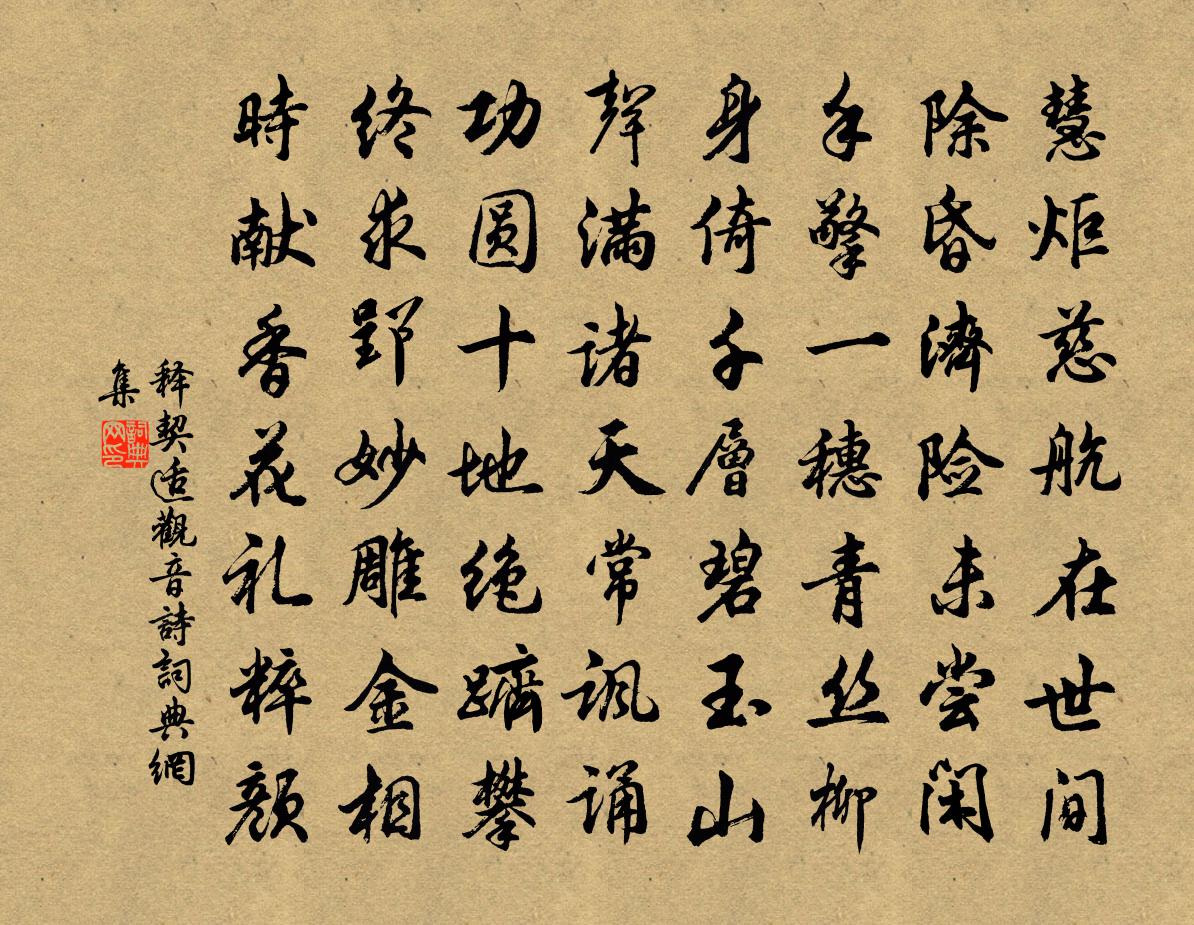 慧炬慈航在世间
除昏濟险未尝闲
手擎一穗青丝柳
身倚千層碧玉山
聲满诸天常讽诵
功圆十地绝躋攀
终求郢妙雕金相
時献香花礼粹颜
释契适觀音詩詞典網
集
詞典
网印